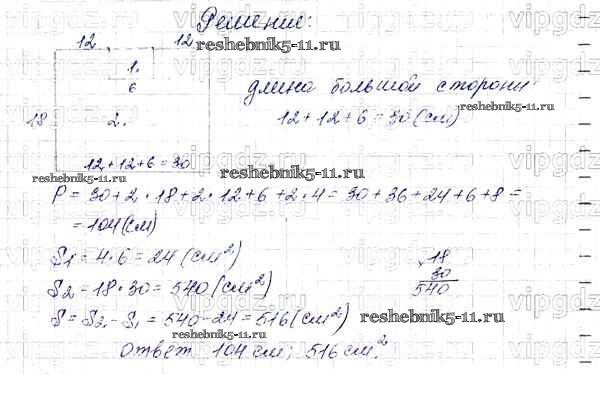 Решение:
12 12
reshebnik5-11.ru
1.
6
длина большой стороны
reshebnik5-11.ru
18 2. 12+12+6=30(см)
12+12+6=30
reshebnik5-11.ru
reshebnik5-11.ru
P = 30+2·18+2·12+6+2·4=30+36+24+6+8=
=104(см)
S1=4·6=24(см²)
S2=18·30=540(см²)
18
30
540
S=S2-S1=540-24=516(см²)
reshebnik5-11.ru
reshebnik5-11.ru
ответ 104 см; 516 см².
vipgdz